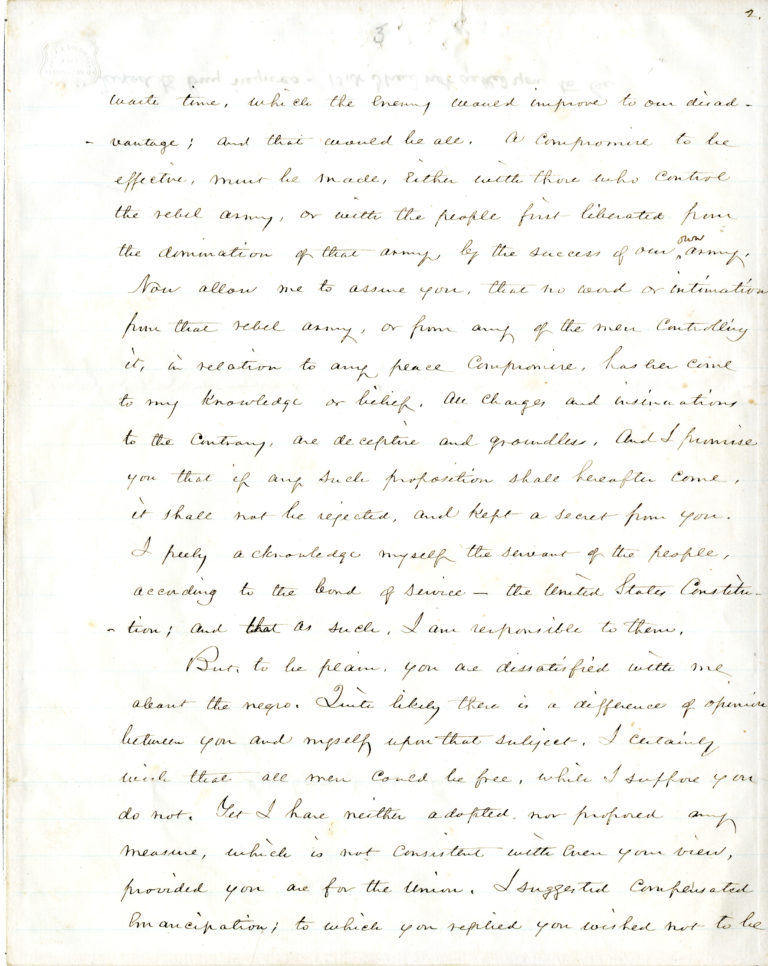 2.
3
waste time, which the enemy would improve to our disad-
-vantage; and that would be all. A compromise to be
effective, must be made, either with those who control
the rebel army, or with the people first liberated from
the domination of that army, by the success of our own army.
Now allow me to assure you, that no word or intimation
from that rebel army, or from any of the men controlling
it, in relation to any peace compromise, has ever come
to my knowledge or belief. All charges and insinuations
to the contrary, are deceptive and groundless. And I promise
you that if any such proposition shall hereafter come,
it shall not be rejected, and kept a secret from you.
I freely acknowledge myself the servant of the people,
according to the bond of service — the United States Constitu-
-tion; and that as such, I am responsible to them.
But, to be plain, you are dissatisfied with me
about the negro. Quite likely there is a difference of opinion
between you and myself upon that subject. I certainly
wish that all men could be free, while I suppose you
do not. Yet I have neither adopted, nor proposed any
measure, which is not consistent with even your view,
provided you are for the Union. I suggested compensated
emancipation; to which you replied you wished not to be